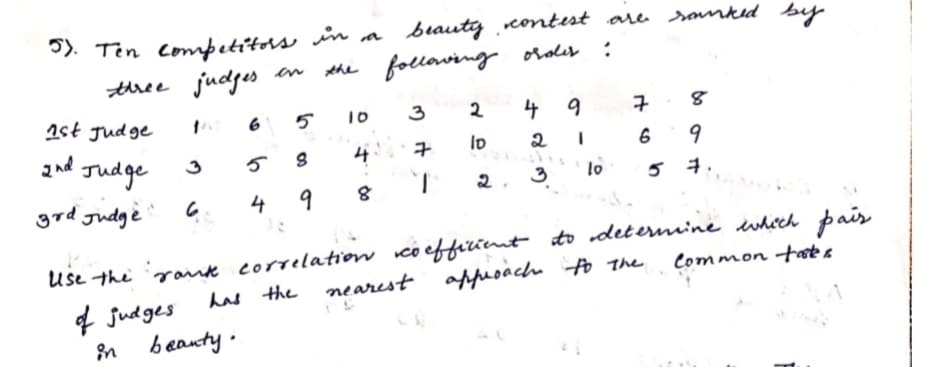 5). Ten Competitors in a beauty contest are ranked by
three judges in the following order :
1st Judge 1 6 5 10 3 2 4 9 7 8
2nd Judge 3 5 8 4 7 10 2 1 6 9
3rd Judge 6 4 9 8 1 2 3 10 5 7.
Use the rank correlation coefficient to determine which pair
of judges has the nearest approach to the Common tastes
in beauty.